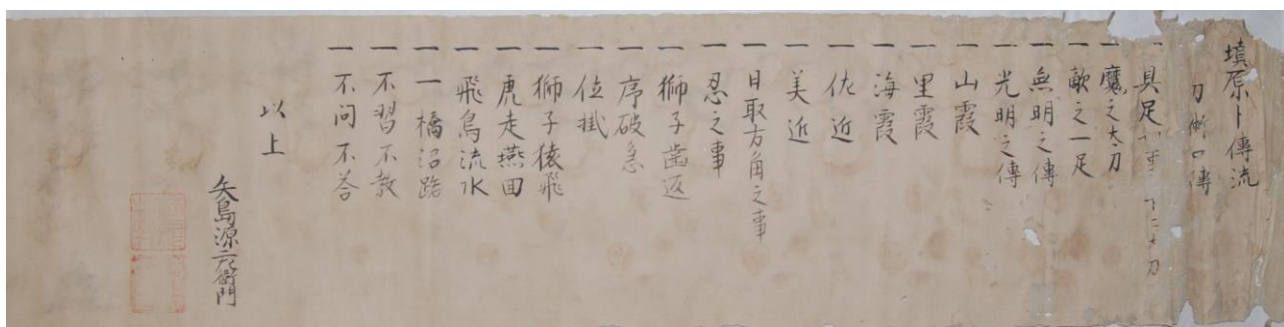 塡原卜傳流
刀術口傳
一 具足
一 魔之太刀
一 敵之一足
一 無明之傳
一 光明之傳
一 山霞
一 里霞
一 海霞
一 佐近
一 美近
一 日取方角之事
一 忍之事
一 獅子歯返
一 序破急
一 位掛
一 獅子猿飛
一 虎走燕回
一 飛鳥流水
一 一橋沼踏
一 不習不教
一 不問不答
以上
矢島源六衛門